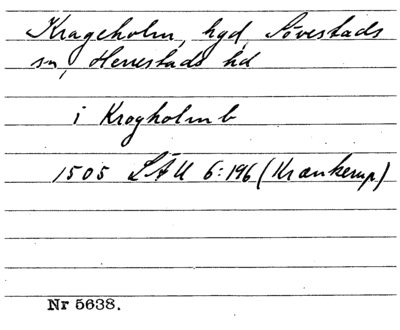 Krageholm, hgd, Sövestads
sn, Herrestads hd
i Krogholm b
1505 LÄU 6:196 (Krankerup)
Nr 5638.